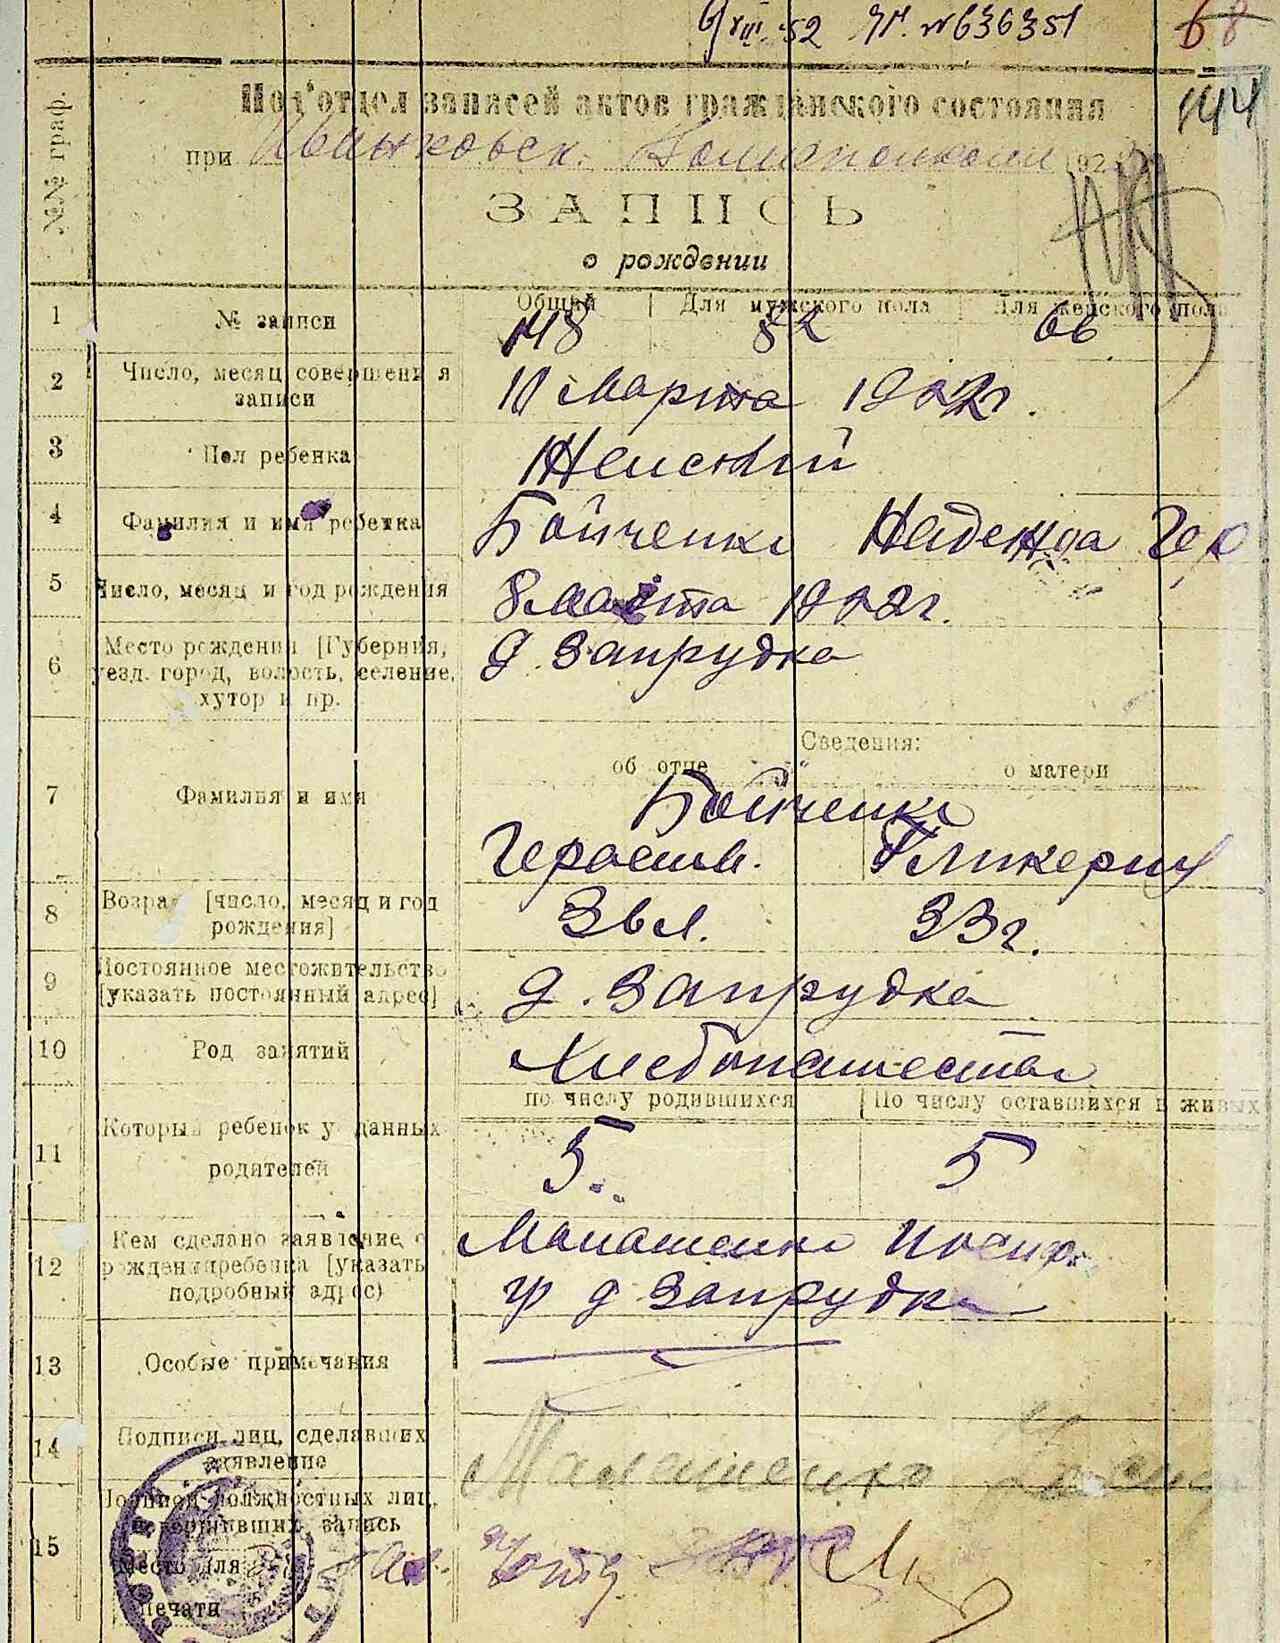 VIII 52 № 636351
68
144
№№ граф.
Под'отдел записей актов гражданского состояния
при Иваньковск. 192
ЗАПИСЬ
о рождении
1 № записи Общий Для мужского пола Для женского пола
148 82 66
2 Число, месяц совершения записи
11 Марта 1922г.
3 Пол ребенка
Женский
4 Фамилия и имя ребенка
Бойченко Надежда Гер
5 Число, месяц и год рождения
8 Марта 1922г.
6 Место рождения [Губерния, уезд. город, волость, селение, хутор и пр.
д. Запрудка
Сведения:
об отце о матери
7 Фамилия и имя
Бойченко
Герасим. Гликерия
8 Возраст [число, месяц и год рождения]
36 л. 33 г.
9 Постоянное местожительство [указать постоянный адрес]
д. Запрудка
10 Род занятий
Хлебопашество
по числу родившихся По числу оставшихся в живых
11 Который ребенок у данных родителей
5 5
12 Кем сделано заявление о рождении ребенка [указать подробный адрес)
Малашенко Иосиф.
гр д Запрудка
13 Особые примечания
14 Подписи лиц, сделавших заявление
Малашенко
15 Подписи должностных лиц, совершивших запись
Место для
печати